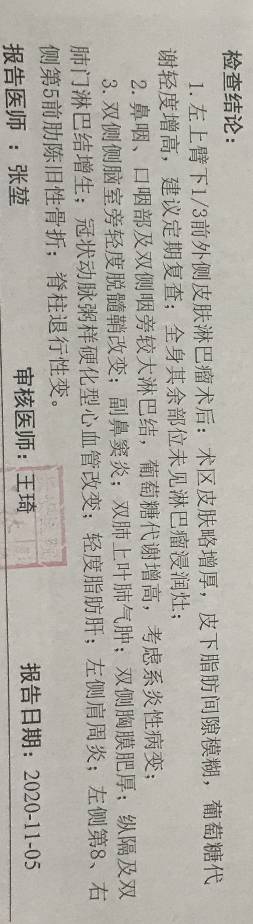 检查结论：
1. 左上臂下1/3前外侧皮肤淋巴瘤术后：术区皮肤略增厚，皮下脂肪间隙模糊，葡萄糖代
谢轻度增高，建议定期复查；全身其余部位未见淋巴瘤浸润灶；
2. 鼻咽、口咽部及双侧咽旁较大淋巴结，葡萄糖代谢增高，考虑系炎性病变；
3. 双侧侧脑室旁轻度脱髓鞘改变；副鼻窦炎；双肺上叶肺气肿；双侧胸膜肥厚；纵隔及双
肺门淋巴结增生；冠状动脉粥样硬化型心血管改变；轻度脂肪肝；左侧肩周炎；左侧第8、右
侧第5前肋陈旧性骨折；脊柱退行性变。
报告医师：张堃 审核医师：王琦 报告日期：2020-11-05